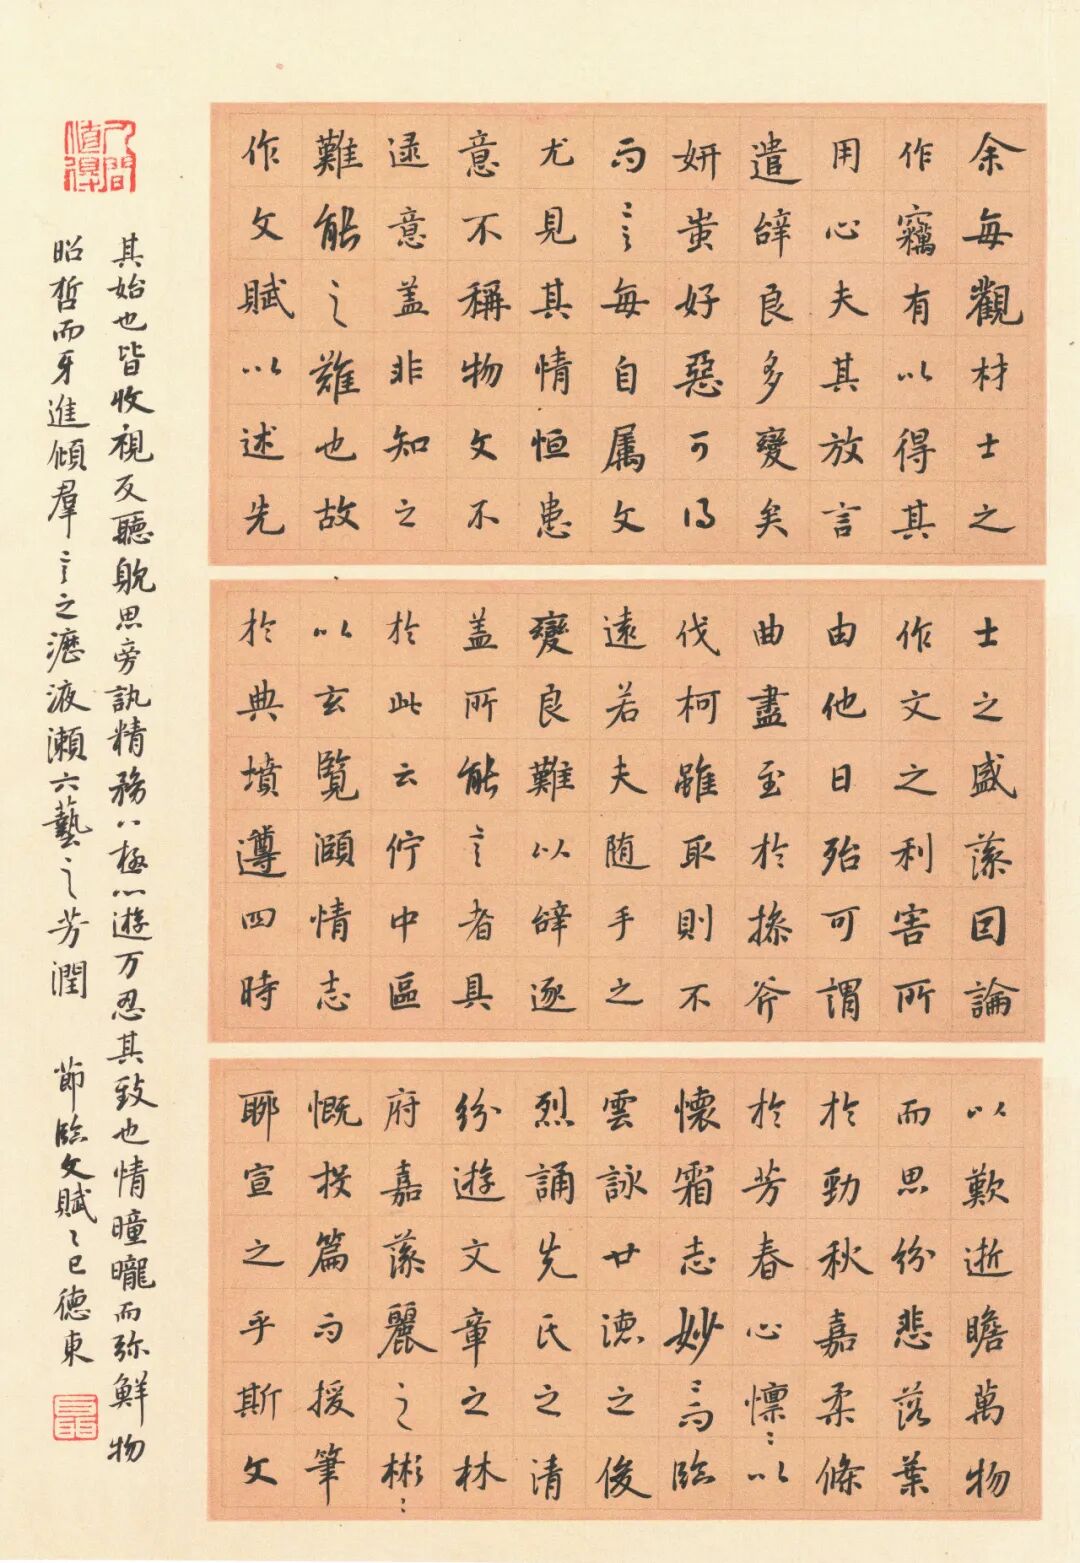 余每觀材士之
作竊有以得其
用心夫其放言
遣辭良多變矣
妍蚩好惡可得
而言每自属文
尤見其情恒患
意不稱物文不
逮意盖非知之
難能之難也故
作文賦以述先
士之盛藻因論
作文之利害所
由他日殆可謂
曲盡至於操斧
伐柯雖取則不
遠若夫随手之
變良難以辭逐
盖所能言者具
於此云佇中區
以玄覽頤情志
於典墳遵四時
以歎逝瞻萬物
而思紛悲落葉
於勁秋嘉柔條
於芳春心懍〻以
懷霜志妙〻而臨
雲詠世德之俊
烈誦先民之清
紛遊文章之林
府嘉藻麗之彬〻
慨投篇而援筆
聊宣之乎斯文
其始也皆收視反聽躭思旁訊精務八極心遊万忍其致也情曈曨而弥鮮物
昭晢而牙進傾羣言之瀝液瀬六藝之芳潤 節臨文賦乙巳德東
人間值得